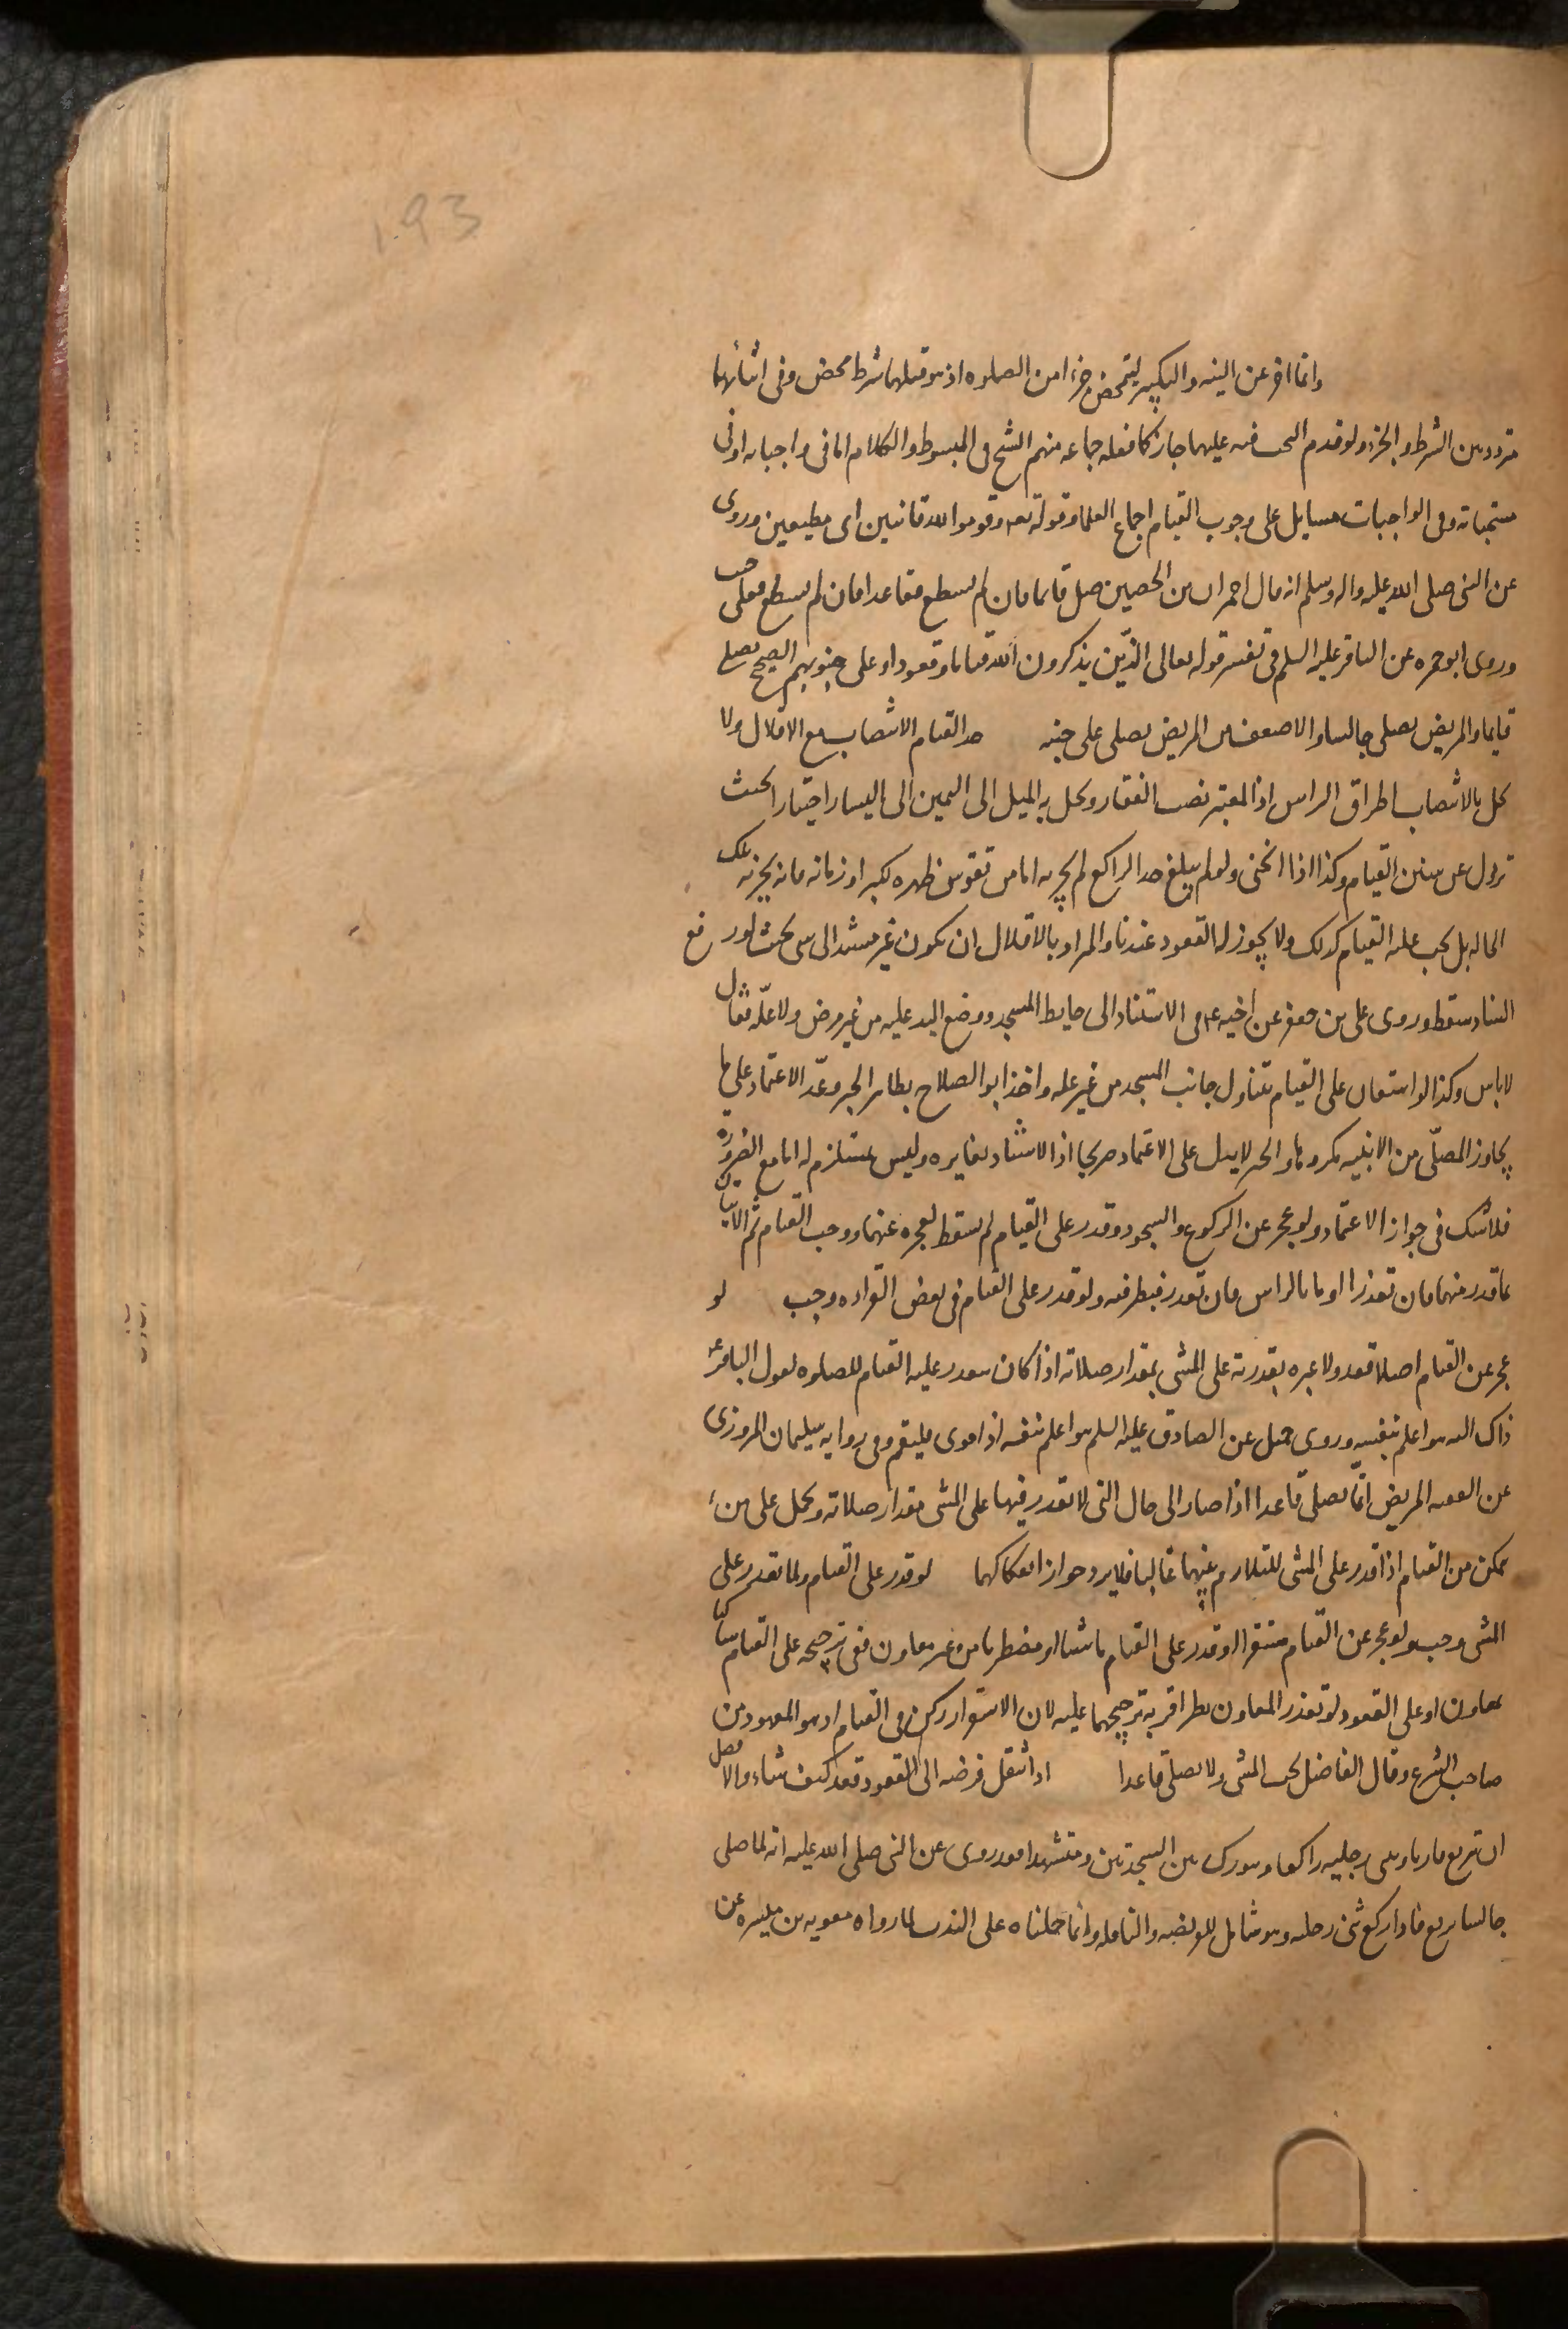 193
وانما اخر عن النيه والتكبير ليتمحض جزءا من الصلوه اذ هو قبلهما شرط محض وفى اثنائهما
متردد بين الشرط والجزء ولو قدم البحث فيه عليهما جاز كما فعله جماعه منهم الشيخ فى المبسوط والكلام اما فى واجباته او فى
مستحباته وفى الواجبات مسايل على وجوب القيام اجماع العلماء وقوله تعه وقوموا لله قانتين اى مطيعين وروى
عن النبى صلى الله عليه واله وسلم انه قال لعمران بن الحصين صل قايما فان لم تستطع فقاعدا فان لم تستطع فعلى جنب
وروى ابو حمزه عن الباقر عليه السلم فى تفسير قوله تعالى الذين يذكرون الله قياما وقعودا وعلى جنوبهم الصحيح يصلى
قايما والمريض يصلى جالسا والاضعف من المريض يصلى على جنبه حد القيام الانتصاب مع الاقلال ولا
يخل بالانتصاب اطراق الراس اذ المعتبر نصب الفقار ويخل به الميل الى اليمين الى اليسار اختيارا بحيث
تزول عن سنن القيام وكذا اذا انحنى ولو لم يبلغ حد الراكع لم يجزه اما من تقوس ظهره لكبر او زمانه فانه يجزئه تلك
الحاله بل يجب عليه القيام كذلك ولا يجوز له القعود عندنا والمراد بالاقلال ان يكون غير مستند الى شى بحيث لو رفع
السناد سقط وروى على بن جعفر عن اخيه عه فى الاستناد الى حايط المسجد ووضع اليد عليه من غير مرض ولا علّه فقال
لا باس وكذا لو استعان على القيام بتناول جانب المسجد من غير عله واخذ ابو الصلاح بظاهر الخبر وعدّ الاعتماد على ما
يجاور المصلّى من الابنيه مكروها والخبر لا يدل على الاعتماد صريحا اذ الاستناد يغايره وليس بمستلزم له اما مع الضروره
فلا شك فى جواز الاعتماد ولو عجز عن الركوع والسجود وقدر على القيام لم يسقط بعجزه عنهما ووجب القيام ثم الاتيان
بما قدر منهما فان تعذرا اوما بالراس فان تعذر فبطرفه ولو قدر على القيام فى بعض القراءه وجب لو
عجز عن القيام اصلا قعد ولا عبره بقدرته على المشى بمقدار صلاته اذا كان يتعذر عليه القيام للصلوه لقول الباقر عه
ذاك اليه هو اعلم بنفسه وروى جميل عن الصادق عليه السلم هو اعلم بنفسه اذا قوى فليقم وفى روايه سليمان المروزى
عن الفقيه المريض انّما يصلى قاعدا اذا صار الى حال التى لا يقدر فيها على المشى مقدار صلاته ويحمل على من
يتمكن من القيام اذا قدر على المشى للتلازم بينهما غالبا فلا يرد جواز انفكاكهما لو قدر على القيام ولما يقدر على
المشى وجب ولو عجز عن القيام مستقرا وقدر على القيام ماشيا او مضطربا من غير معاون ففى ترجيحه على القيام ساكنا
بمعاون او على القعود لو تعذر المعاون نظر اقربه ترجيحهما عليه لان الاستقرار ركن فى القيام اذ هو المعهود من
صاحب الشرع وقال الفاضل يجب المشى ولا يصلى قاعدا اذا انتقل فرضه الى القعود قعد كيف شاء والافضل
ان يتربع قاريا ويثنى رجليه راكعا ويتورك بين السجدتين ومتشهدا فقد روى عن النبى صلى الله عليه انه لما صلى
جالسا تربع فاذا ركع ثنى رجليه وهو شامل للفريضه والنافله وانما حملناه على الندب لما رواه معويه بن ميسره عن